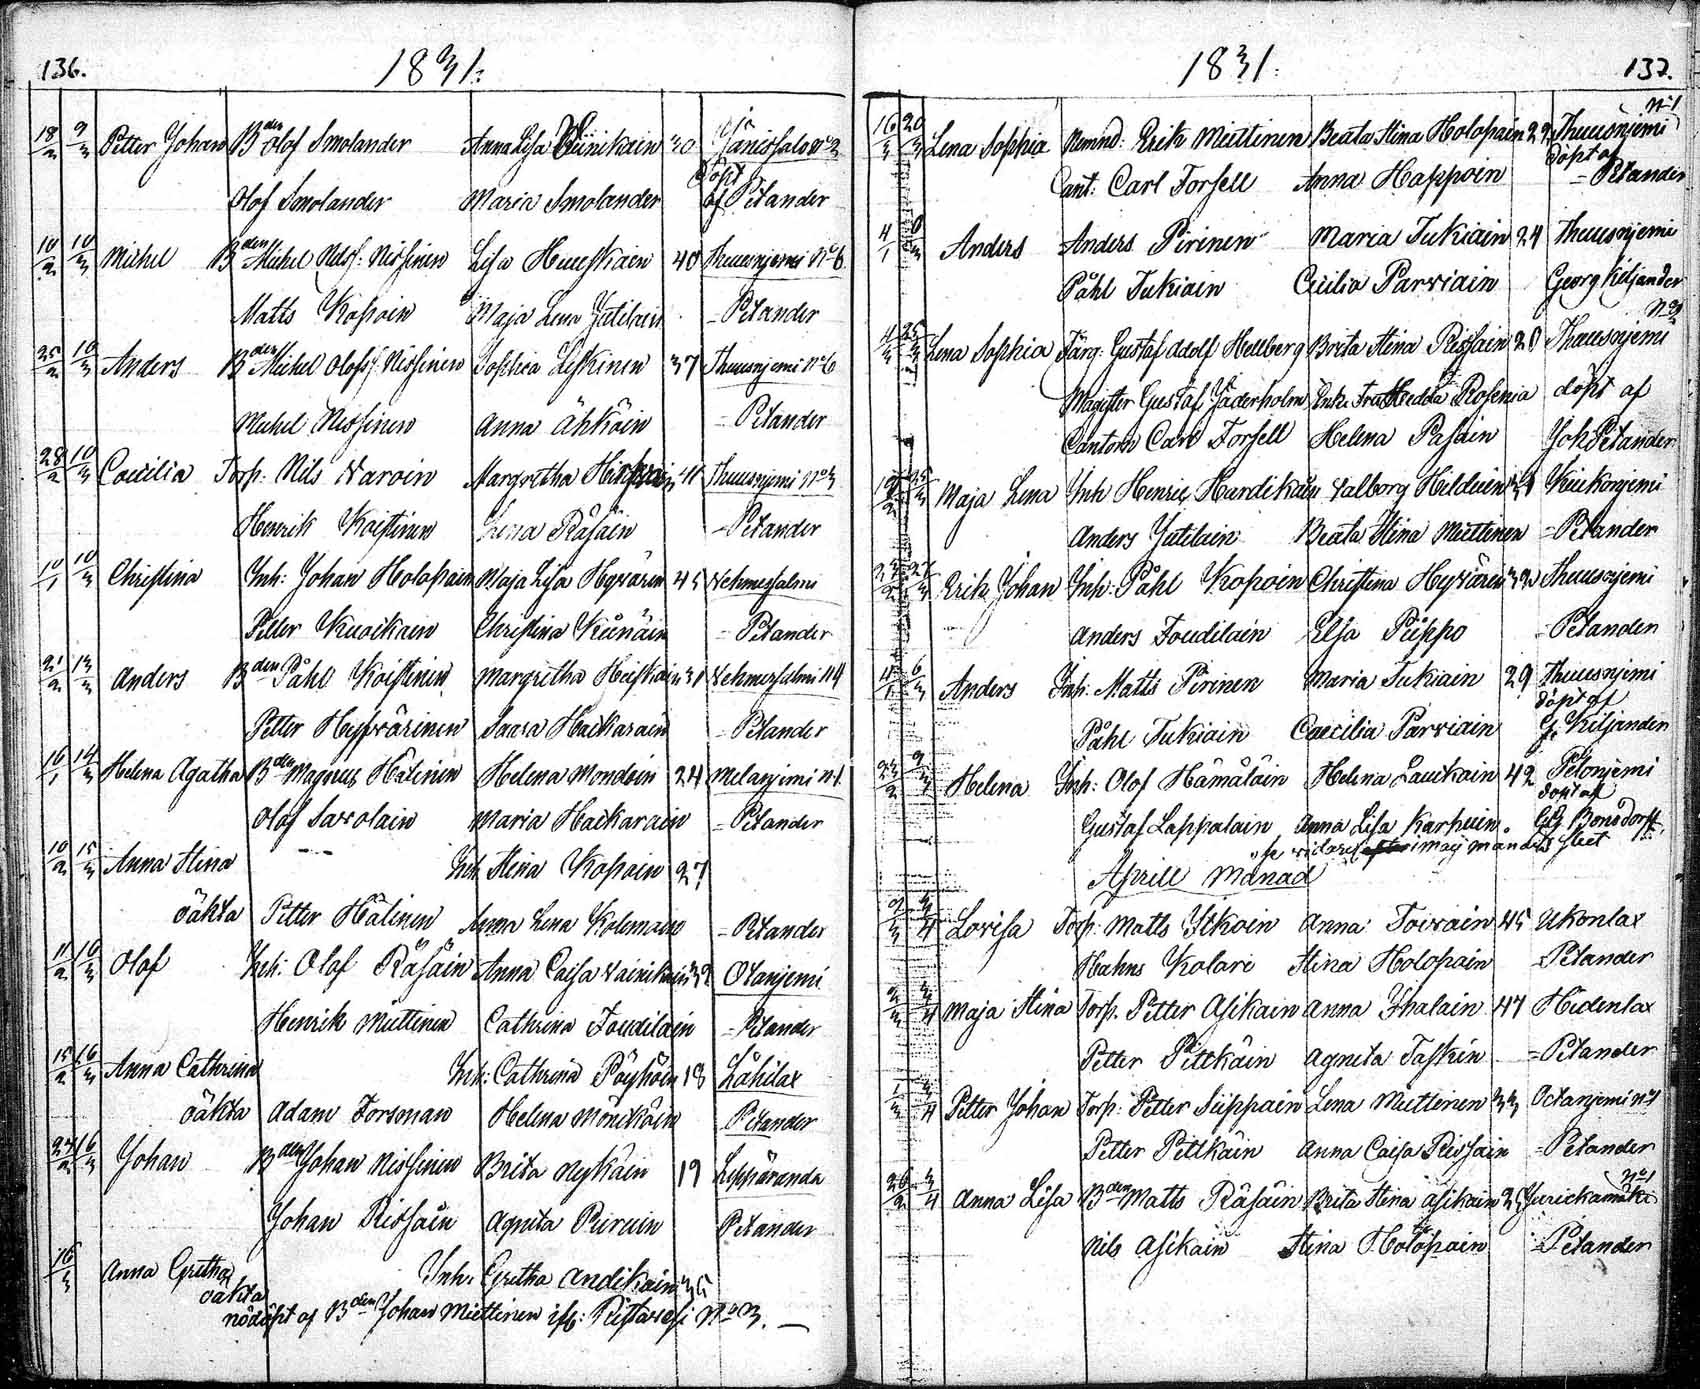 136.
1831.
18/2 9/3 Petter Johan Bden Olof Smolander Anna Lisa 40 Jänissalo No 2
döpt
Olof Smolander Maria Smolander af Petander
10/2 10/3 Michel Bden Michel Nilsss: Nissinen Lisa Huuskain 40 Thuusnjemi No 6
Matts Kopoin Maja Lena Jutilain = Petander
25/2 10/3 Anders Bden Michel Olofss: Nissinen Sophia Leskinen 37 Thuusnjemi No 6
Michel Nissinen Anna Ähköin = Petander
28/2 10/3 Caecilia Torp: Nils Varoin Margretha 41 Thuusnjemi No 3
Henrik Koistinen Lena Räsäin = Petander
10/3 Christina Inh: Johan Holopain Maja Lisa Hyvärin 45 Vehmersalmi
Petter Kuoikain Christina Kuinäin = Petander
21/2 13/3 Anders Bden Påhl Koistinen Margretha Heiskain 31 Vehmersalmi N4
Petter Hyvärinen Saara Hackarain = Petander
16/1 14/3 Helena Agatha Bden Magnus Hätinen Helena Mondein 24 Melanjemi N1
Olof Savolain Maria Hackarain = Petander
10/2 15/3 Anna Stina Inh: Stina Kopain 27
oäkta Petter Hätinen Anna Lena Kolemain = Petander
11/2 16/3 Olof Inh: Olof Räsäin Anna Caisa Vainikain 32 Otanjemi
Henrik Miettinen Cathrina Toudilain = Petander
15/2 16/3 Anna Cathrina Inh: Cathrina Pöyhöin 18 Lähilax
oäkta Adam Forsman Helena Mönckäin Petander
16/3 Johan Bden Johan Nissinen Brita Nykäin 19 Leppäranda
Johan Rissain Agnita Piiruin Petander
16/3 Anna Gretha Inh: Gretha Andikain 35
oäkta
nöddöpt af Bden Johan Miettinen No 3.
1831.
137.
No 1
16/3 20/3 Lena Sophia Nemnd: Erik Miettinen Beata Stina Holopain 22 Thuusnjemi
döpt af
Cant: Carl Forsell Anna Happoin = Petander
4/1 Anders Anders Pirinen Maria Tukiain 24 Thuusnjemi
Påhl Tukiain Cicilia Parviain Georg Kiljander
25/3 Lena Sophia Färg: Gustaf Adolf Hellberg Brita Stina Rissain 20 Thuusnjemi
Magister Gustaf Jäderholm Enke Fru Hedda Rosenia döpt af
Cantorn Carl Forsell Helena Pasain Joh Petander
25/3 Maja Lena Inh Henric Hardikain Valborg Hilduin Kiukonjemi
Anders Jutilain Beata Stina Miettinen = Petander
27/3 Erik Johan Inh: Påhl Kopoin Christina Hyvären 32 Thuusnjemi
Anders Toudilain Elsa Piippo = Petander
Anders Inh: Matts Pirinen Maria Tukiain 29 Thuusnjemi
döpt af
Påhl Tukiain Caecilia Parviain G. Kiljander
Helena Inh: Olof Hämäläin Helena Laukain 42 Petonjemi
döpt af
Gustaf Lappalain Anna Lisa Karhuin. Bonsdorff
se vidare i maij månads slut
Aprill Månad
3/4 Lovisa Torp: Matts Itkoin Anna Toivain 45 Ukonlax
Hahns Kolari Stina Holopain = Petander
3/4 Maja Stina Torp. Petter Asikain Anna Ihalain 47 Hidenlax
Petter Pitkäin Agneta Taskin = Petander
1/3 3/4 Petter Johan Torp: Petter Siippain Lena Miettinen 33 Octanjemi No 1
Petter Pitkäin Anna Caisa Rissain = Petander
No 1
26/2 3/4 Anna Lisa Bden Matts Räsäin Brita Stina Asikain Jurickamäki
Nils Asikain Stina Holopain = Petander